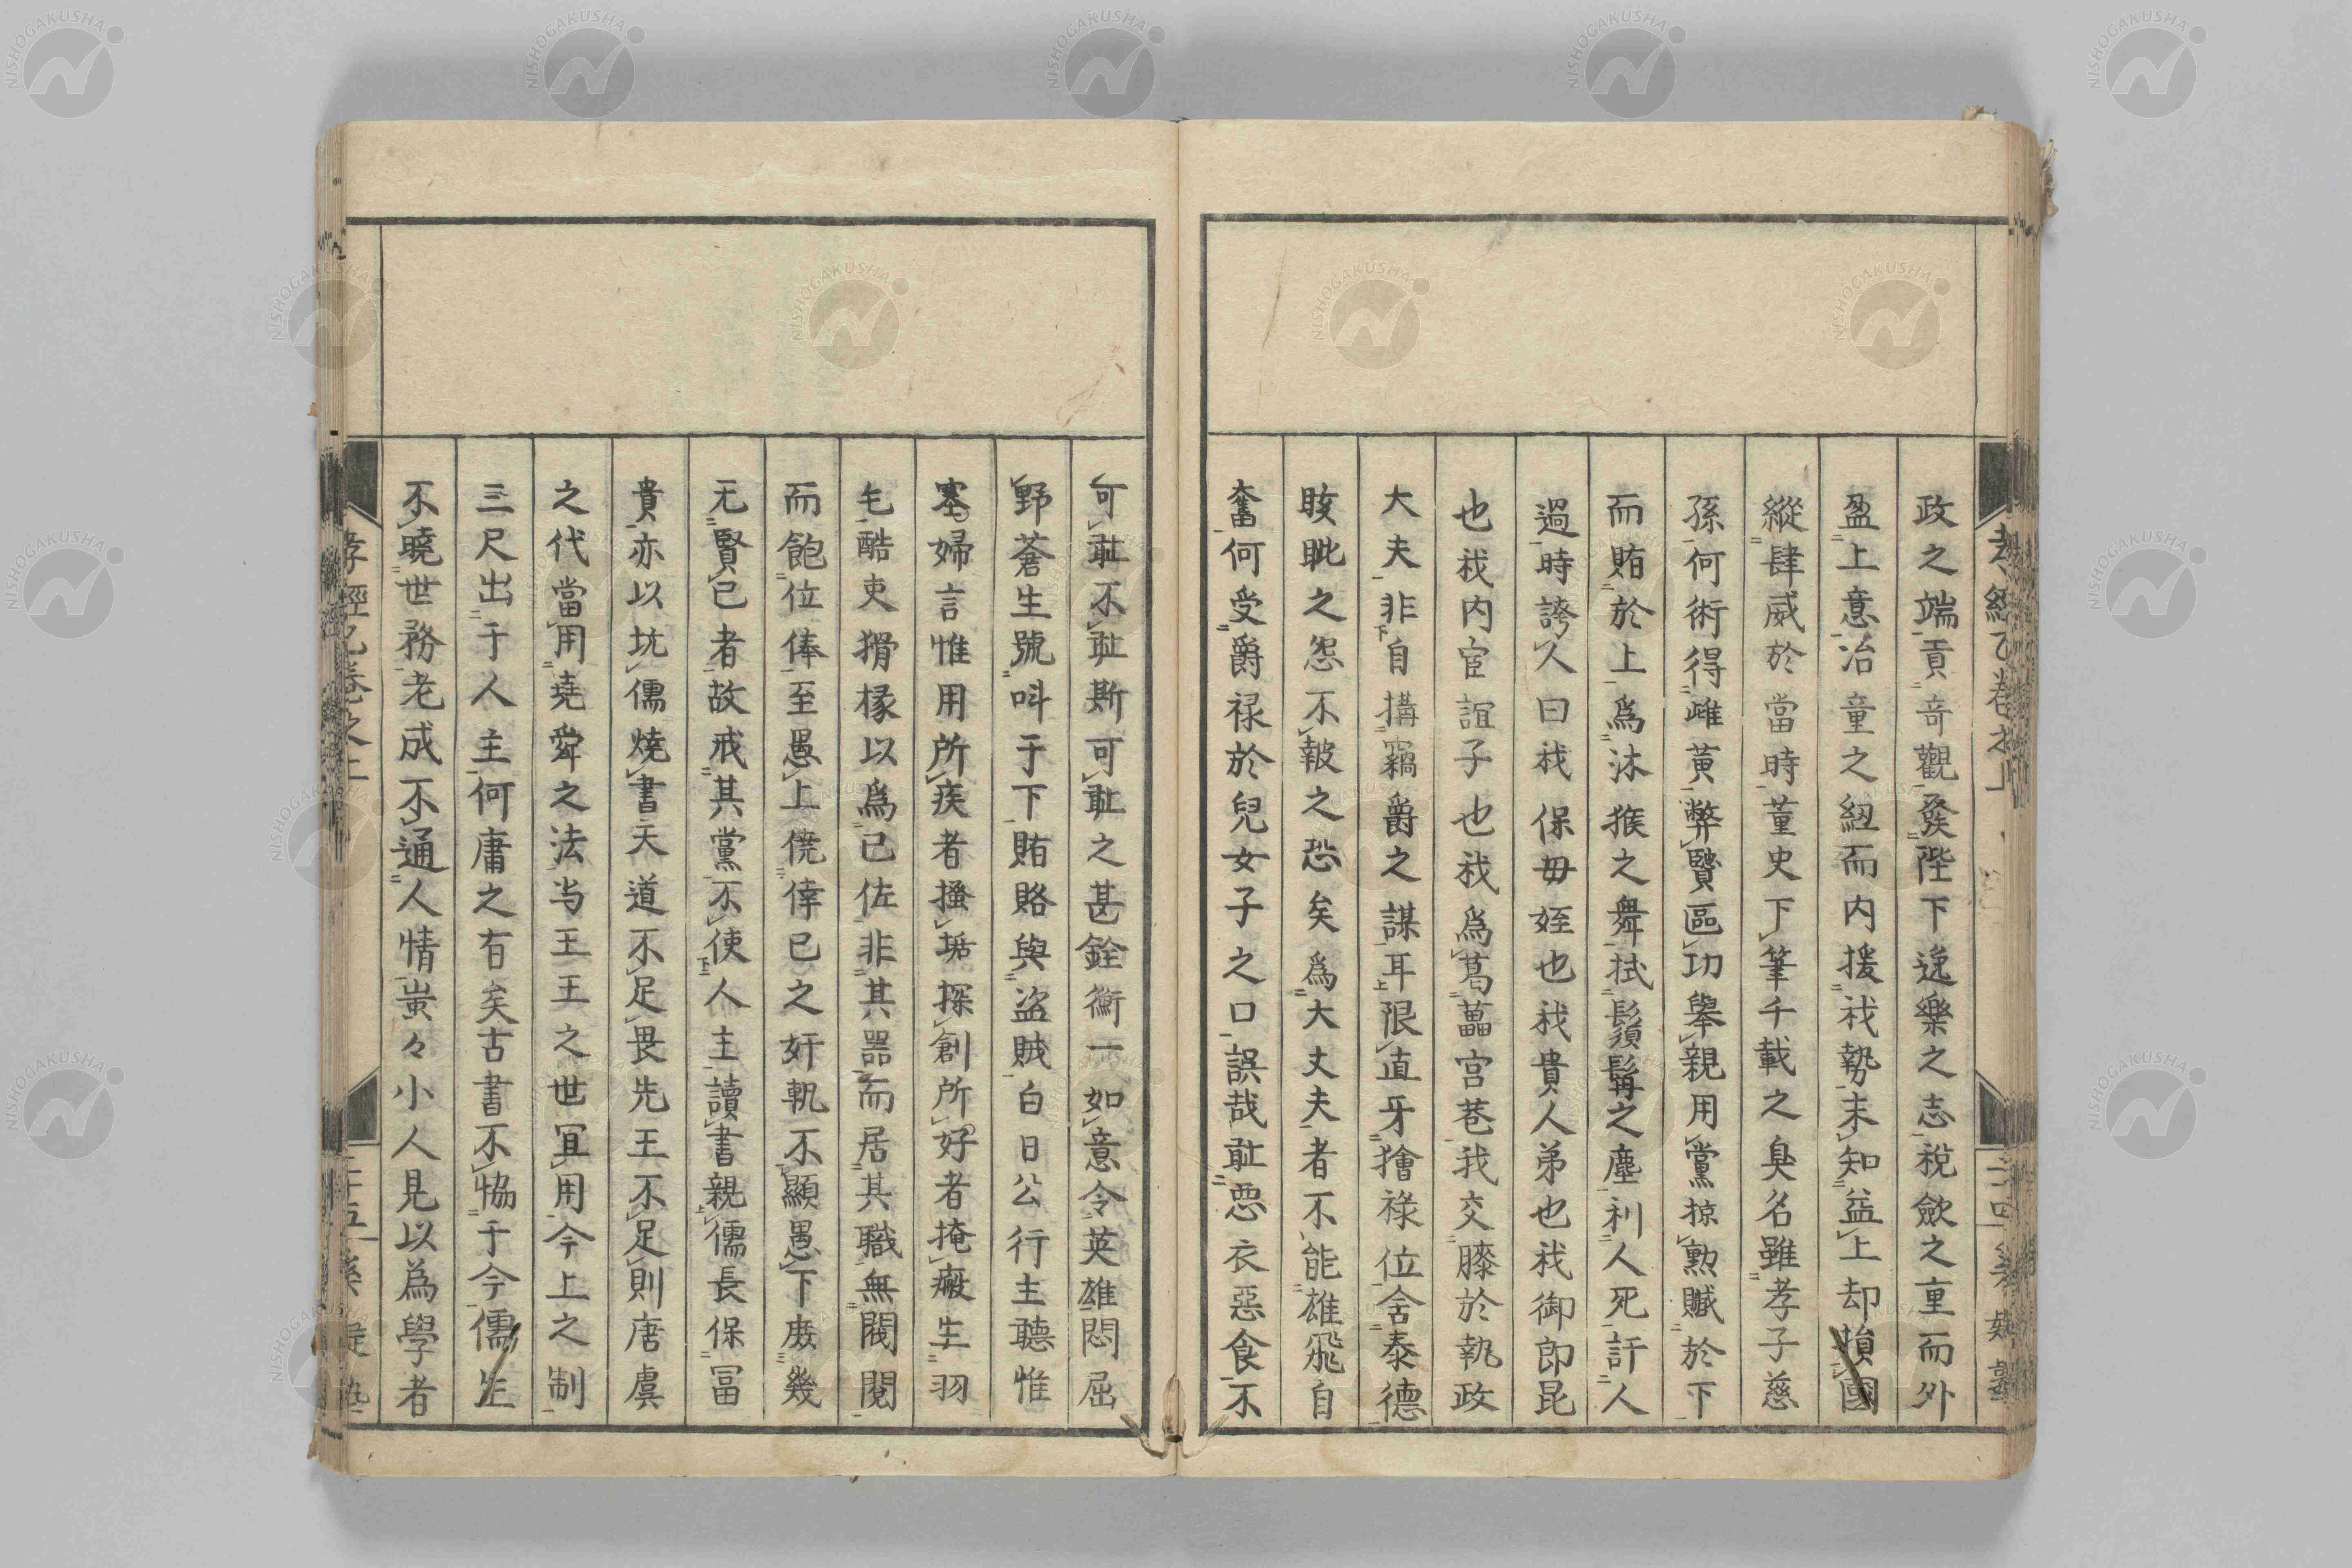 政之端貢奇觀發陛下逸樂之志稅歛之重而外
盈上意治童之紐而内援我勢未知益上却損國
縱肆威於當時董史下筆千載之臭名雖孝子慈
孫何術得雌黄弊賢區功舉親用黨掠勲贓於下
而賄於上爲沐猴之舞拭鬚髯之塵利人死訐人
過時誇人曰我保毋姪也我貴人弟也我御郎昆
也我内宦誼子也我爲葛藟宮巷我交膝於執政
大夫非自搆竊爵之謀耳限直牙獪祿位舍泰德
眩眦之怨不報之恐矣爲大丈夫者不能雄飛自
奮何受爵禄於兒女子之口誤哉耻惡衣惡食不
可耻不耻斯可耻之甚銓衡一如意令英雄悶屈
野蒼生號呌于下賄賂與盗賊白日公行主聽惟
塞婦言惟用所疾者搔垢探創所好者掩癜生羽
毛酷吏猾掾以爲己佐非其噐而居其職無閥閱
而飽位俸至愚上僥倖已之奸軌不顯愚下庻幾
无賢已者故戒其黨不使人主讀書親儒長保冨
貴亦以坑儒燒書天道不足畏先王不足則唐虞
之代當用堯舜之法当王王之世冝用今上之制
三尺出于人主何庸之有矣古書不恊于今儒生
不曉世務老成不通人情蚩々小人見以為學者
孝經乙卷之上